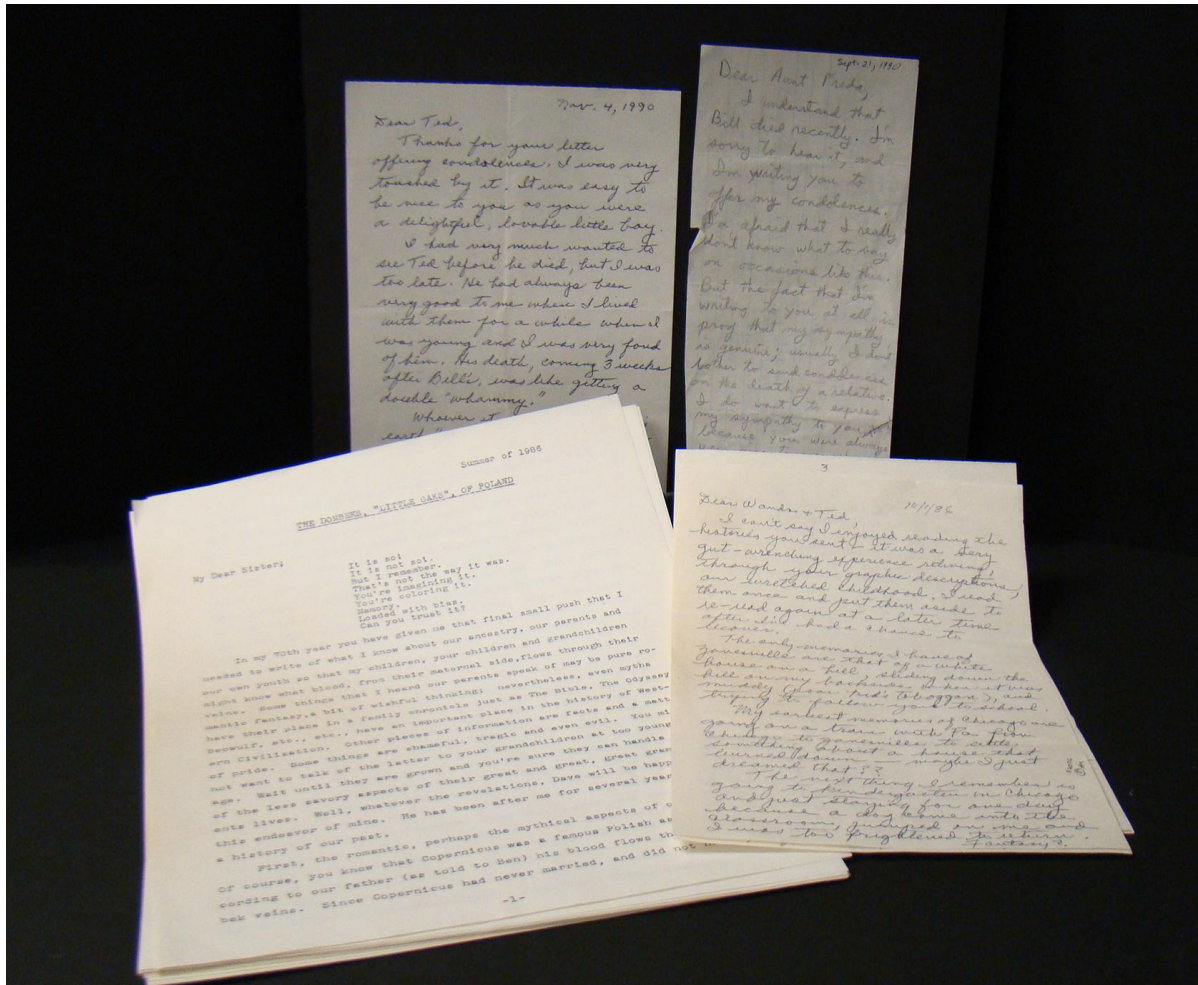 Nov. 4, 1990
Dear Ted,
Thanks for your letter
offering condolences. I was very
touched by it. It was easy to
be nice to you as you were
a delightful, lovable little boy.
I had very much wanted to
see Ted before he died, but I was
too late. He had always been
very good to me when I lived
with them for a while when I
was young and I was very fond
of him. His death, coming 3 weeks
after Bell's, was like getting a
double "whammy."
Whoever it
earth
Sept. 21, 1990
Dear Aunt Freda,
I understand that
Bill died recently. I'm
sorry to hear it, and
I'm writing you to
offer my condolences.
I'm afraid that I really
don't know what to say
on occasions like this.
But the fact that I'm
writing to you at all is
proof that my sympathy
is genuine; usually I don't
bother to send condolences
on the death of a relative.
I do want to express
my sympathy to you
because you were always
Summer of 1986
THE DOMBEKS, "LITTLE OAKS", OF POLAND
My Dear Sister;
It is so!
It is not so!
But I remember.
That's not the way it was.
You're imagining it.
You're coloring it.
Memory.
Loaded with bias.
Can you trust it?
In my 70th year you have given me that final small push that I
needed to write of what I know about our ancestry, our parents and
our own youth so that my children, your children and grandchildren
might know what blood, from their maternal side, flows through their
veins. Some things that I heard our parents speak of may be pure ro-
mantic fantasy, a bit of wishful thinking; nevertheless, even myths
have their place in a family chronicle just as The Bible, The Odyssey
Beowulf, etc., etc., have an important place in the history of West-
ern Civilization. Other pieces of information are facts and a matt
of pride. Some things are shameful, tragic and even evil. You mi
not want to talk of the latter to your grandchildren at too young
age. Wait until they are grown and you're sure they can handle
of the less savory aspects of their great and great, great gran
ents lives. Well, whatever the revelations, Dave will be happ
this endeavor of mine. He has been after me for several year
a history of our past.
First, the romantic, perhaps the mythical aspects of
Of course, you know that Copernicus was a famous Polish as
cording to our father (as told to Ben) his blood flows th
bek veins. Since Copernicus had never married, and did not
-1-
3
Dear Wanda + Ted, 10/1/86
I can't say I enjoyed reading the
histories you sent - it was a very
gut-wrenching experience reliving,
through your graphic descriptions,
our wretched childhood. I read
them once and put them aside to
re-read again at a later time
after I've had a chance to
recover.
The only memories I have of
Janesville are that of a white
house on a hill, sliding down the
hill on my backside when it was
muddy (poor kid's toboggan) and
trying to follow you to school.
My earliest memories of Chicago are
going on a train with Pa from
Chicago to Janesville to settle
something about a house that
burned down - maybe I just
dreamed that??
The next thing I remember is
going to kindergarten in Chicago
and just staying for one day
because a dog came into the
classroom, jumped on me and
I was too frightened to return.
Fantasy?